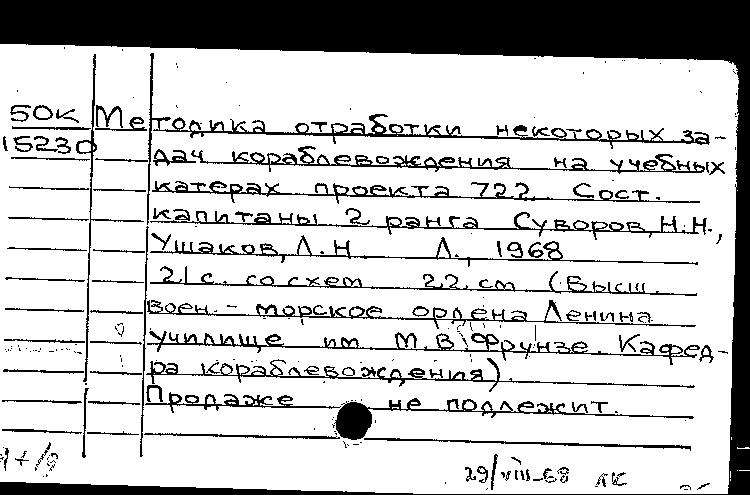 50К Методика отработки некоторых за-
15230 дач кораблевождения на учебных
катерах проекта 722. Сост.
капитаны 2 ранга Суворов, Н.Н.,
Ушаков, Л.Н. Л., 1968
21 с. со схем 22 см (Высш.
воен.-морское ордена Ленина
училище им М.В. Фрунзе. Кафед-
ра кораблевождения).
Продаже не подлежит.
29/VIII-68